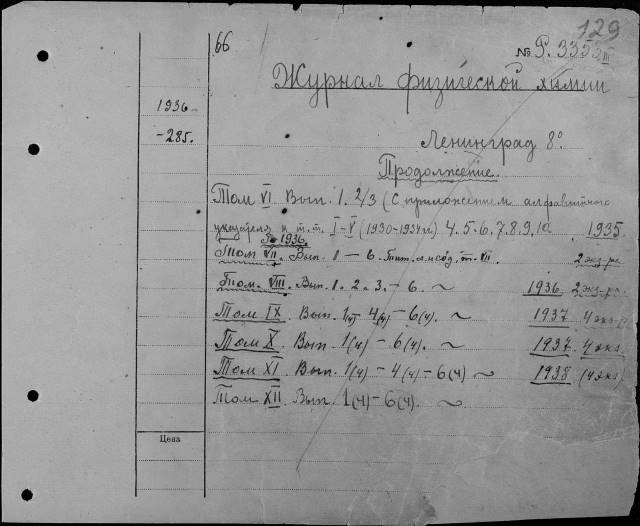 129
66
№ P. 3353 III
Журнал физической химии
1936
-285.
Ленинград 8°.
Продолжение.
Том VI Вып. 1. 2/3 (С приложением алфавитного
указателя к т.т. I-V (1930-1934гг) 4. 5. 6, 7. 8. 9, 10 1935
1936.
Том VII. Вып. 1 - 6. Тит. л. и сод. т. VII. 2 экз-ра
Том. VIII. Вып. 1. 2. 3. - 6. ~ 1936 2 экз-ра.
Том IX. Вып. 1(4) - 4(4) - 6(4). ~ 1937 4 экз-р
Том X. Вып. 1(4) - 6(4). ~ 1937 4 экз.
Том XI. Вып. 1(4) - 4(4) - 6(4) ~ 1938 (4 экз)
Том XII. Вып. 1(4) - 6(4). ~
Цена